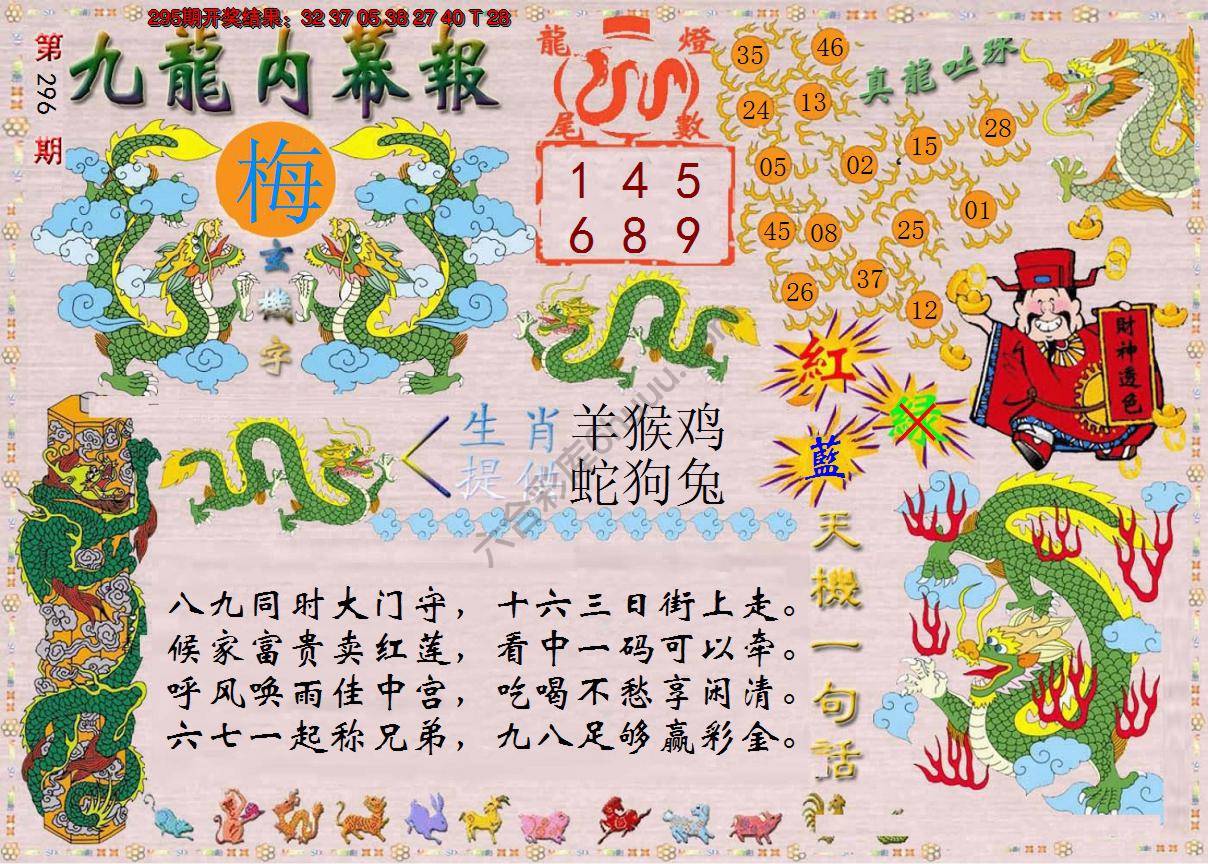 295期开奖结果：32 37 05 38 27 40 T 28
第296期
九龍内幕報
梅
玄機字
龍燈尾數
1 4 5
6 8 9
真龍吐珠
35 46
24 13
05 02 15 28
45 08 25 01
26 37 12
財神透色
紅
绿
藍
生肖 羊猴鸡
提供 蛇狗兔
天機一句話
八九同时大门守，十六三日街上走。
候家富贵卖红莲，看中一码可以牵。
呼风唤雨佳中宫，吃喝不愁享闲清。
六七一起称兄弟，九八足够赢彩金。